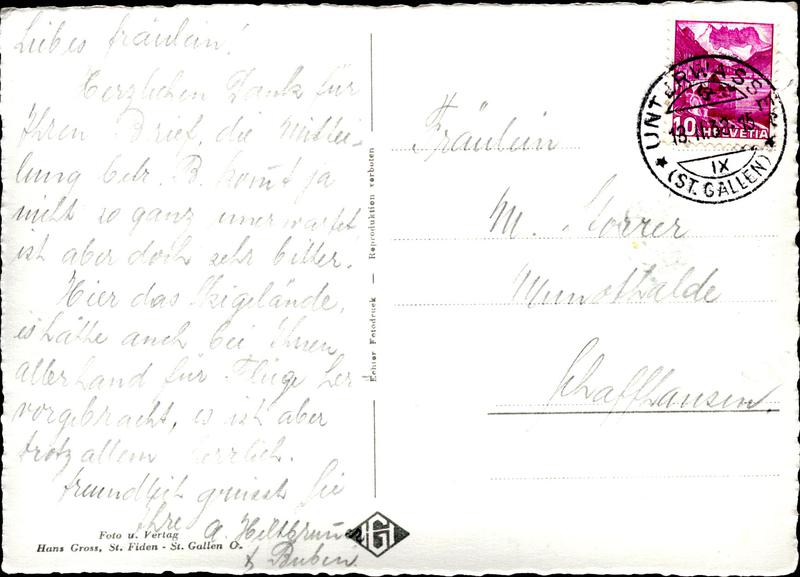 Liebes Fräulein!
Herzlichen Dank für
Ihren Brief, die Mittei-
lung betr. B. kom̄t ja
nicht so ganz unerwartet,
ist aber doch sehr bitter.
Hier das Skigelände,
es hätte auch bei Ihnen
allerhand für Flüge her
vorgebracht, es ist aber
trotz allem herrlich.
freundlich grüsst Sie
Ihre A.
& Buben
Foto u. Verlag
Hans Gross, St. Fiden - St. Gallen O.
Echter Fotodruck — Reproduktion verboten
G
Fräulein
M. Storrer
Munothalde
Schaffhausen.
10 HELVETIA
UNTERWASSER
IX
(ST. GALLEN)